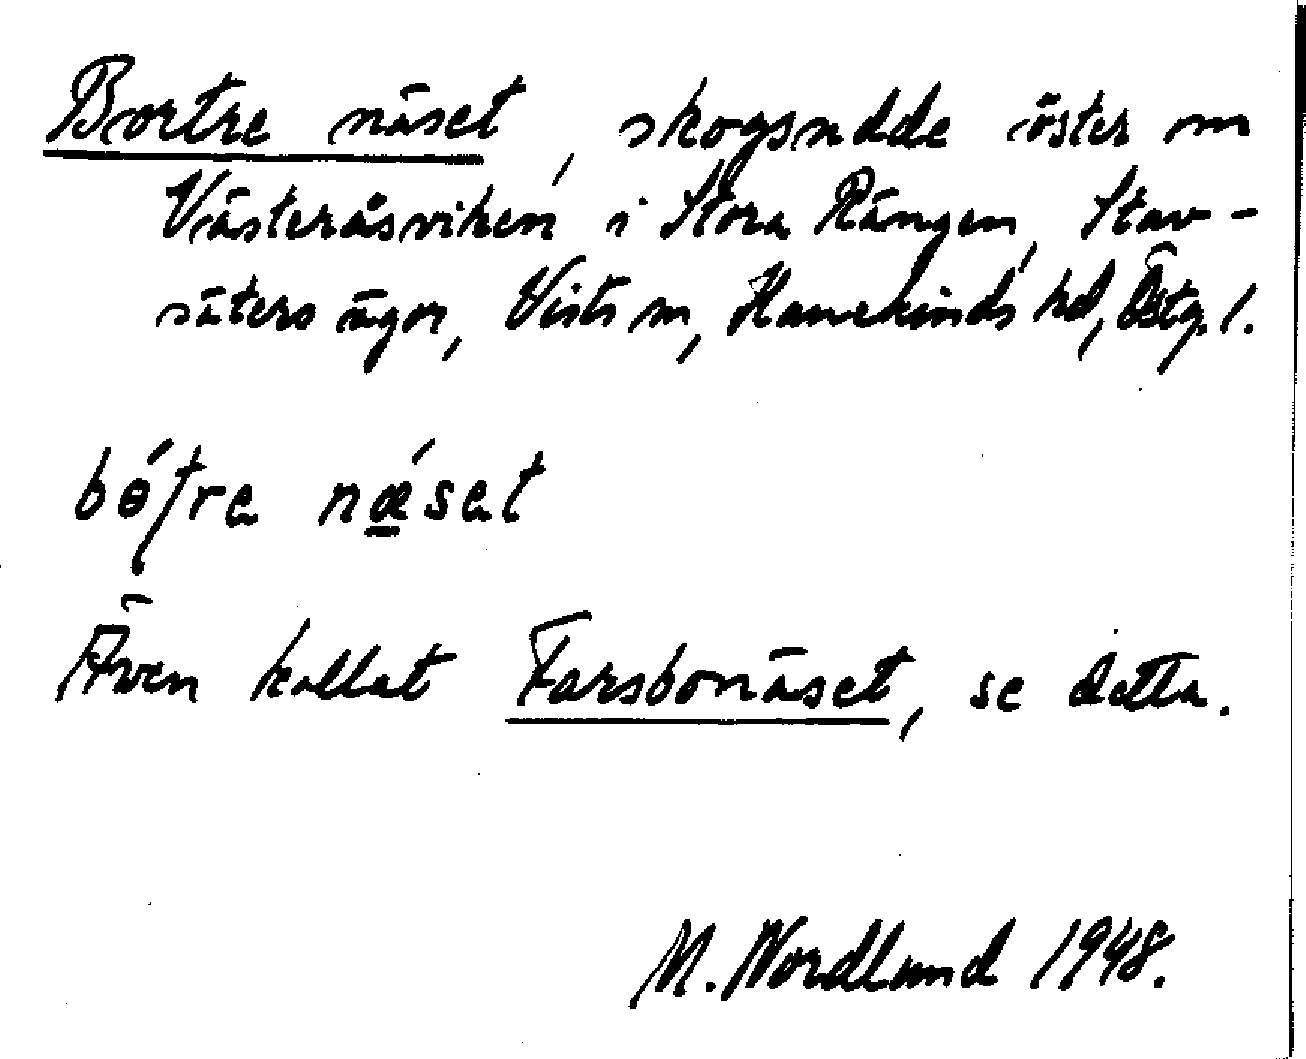 Bortre näset, skogsudde öster om
Västeråsviken i Stora Rängen, Stav-
säters ägor, Vists sn, Hanekinds hd, Östg. l.
bɵ́ʃtre nǽset
Även kallat Farsbonäset, se detta.
M. Nordlund 1948.